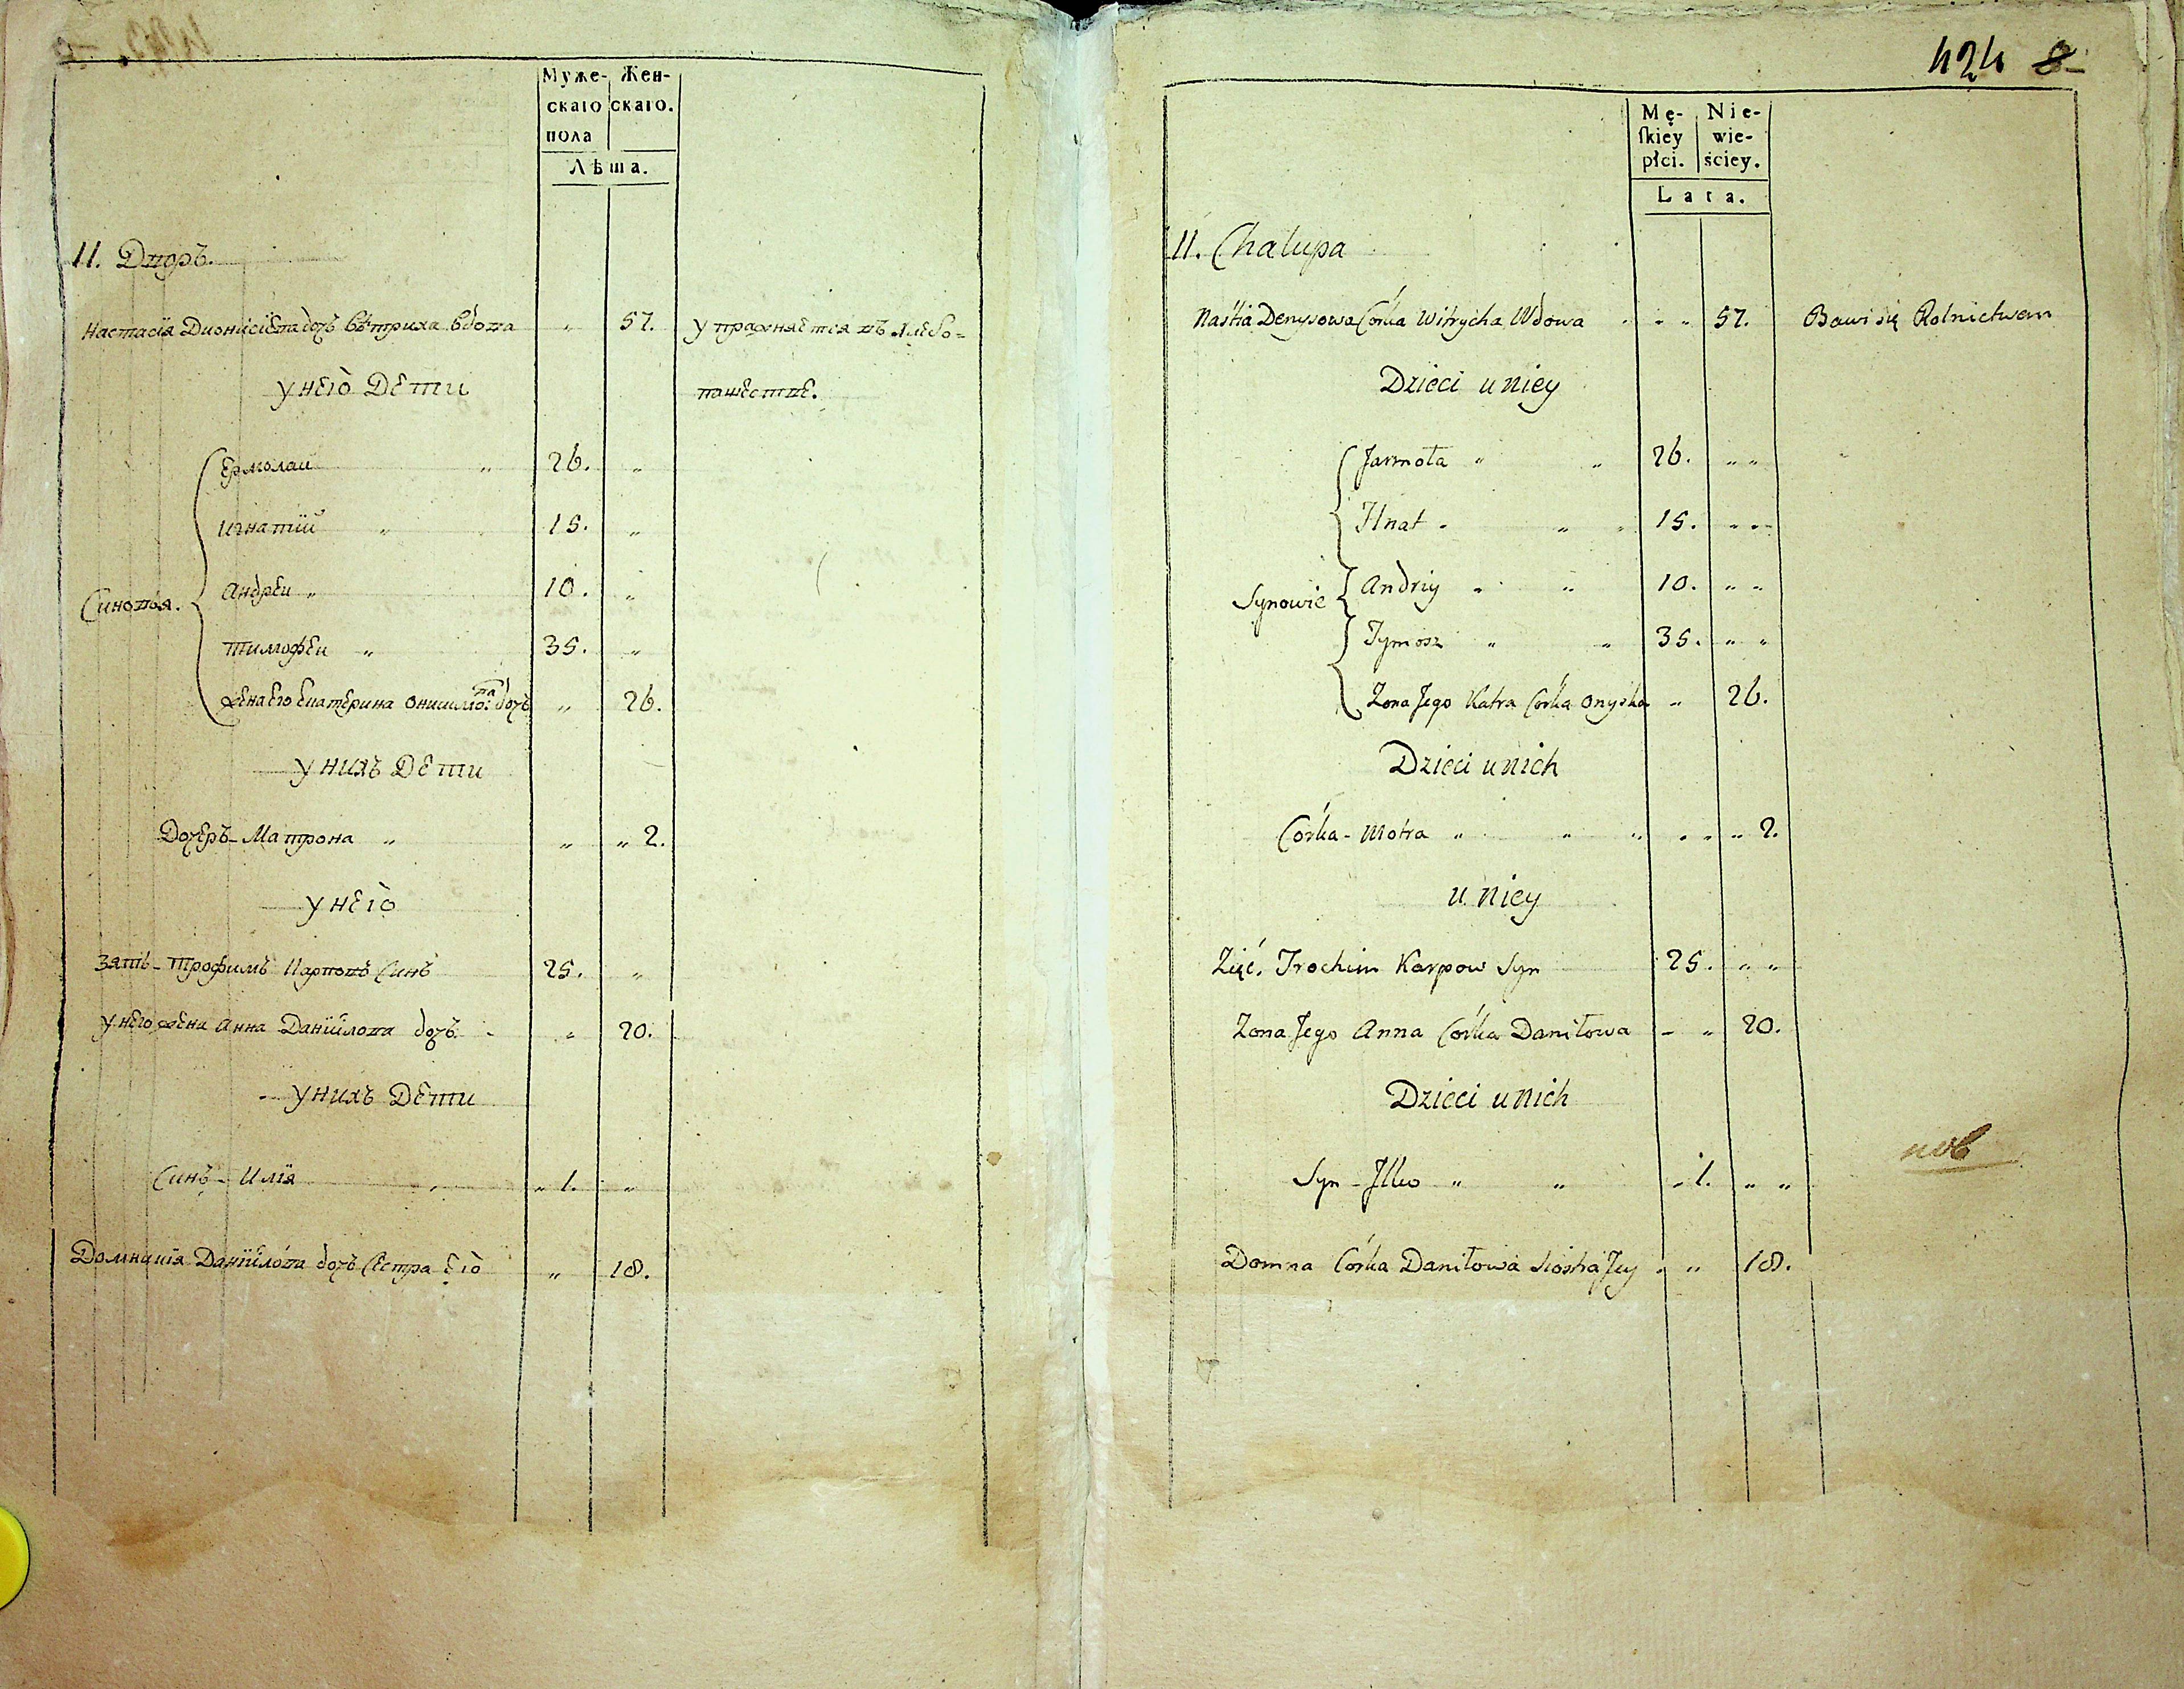 Муже- Жен-
скаго скаго.
пола
Лѣта.
11. Дворъ.
Настасія Дионисіева дочъ Вѣтриха вдова " 57. упражняется въ хлебо-
у него Дети пашестве.
Ермолаи " 26. "
Игнатій " 15. "
Синовья. Андреи " 10. "
Тимофеи " 35. "
жена его Екатерина Онишко: ва дочъ " 26.
у нихъ Дети
Дочеръ - Матрона " " " 2.
у него
Зять - Трофимъ Карповъ Синъ 25. "
у него жена Анна Даніилова дочъ " 20.
у нихъ Дети
Синъ - Илія " " 1. "
Домникія Даніилова дочъ Сестра его " 18.
424 8
Mę- Nie-
skiey wie-
płci. ściey.
Lata.
11. Chalupa
Nastia Denysowa Corka Witrycha Wdowa " " 57. Bawi się Rolnictwem
Dzieci u niey
Jarmoła " " 26. " "
Ihnat " " 15. " "
Synowie Andriy " " 10. " "
Tymosz " " 35. " "
Zona Jego Katra Corka Onyska " 26.
Dzieci u nich
Corka - Motra " " " " " 2.
u niey
Zięć. Trochim Karpow Syn 25. " "
Zona Jego Anna Corka Daniłowa " " 20.
Dzieci u nich
Syn - Illko " " " 1. " "
Domna Corka Daniłowa Siostra Jey " " 18.